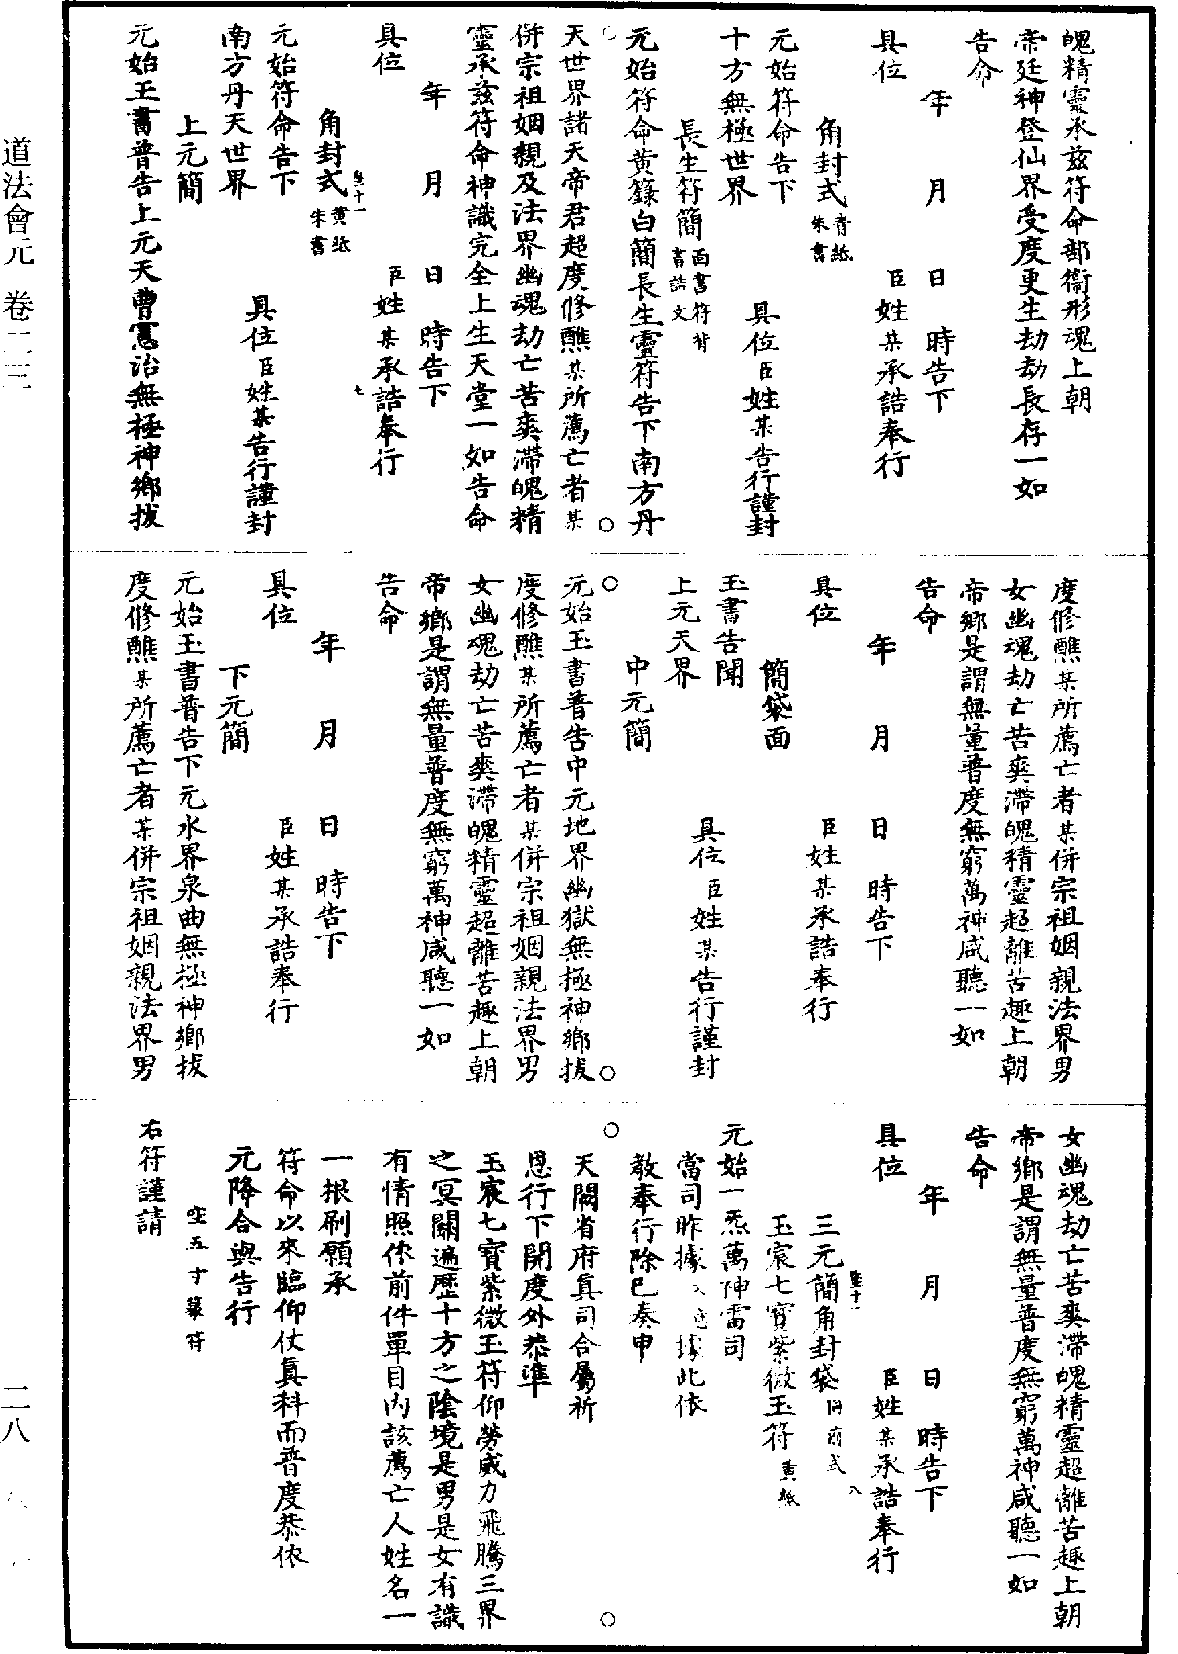 魄精靈承茲符命部衞形魂上朝
帝廷神登仙界受度更生劫劫長存一如
告命
年 月 日 時告下
具位 臣姓某承誥奉行
角封式青紙朱書
元始符命告下
十方無極世界 具位臣姓某告行謹封
長生符簡面書符背書誥文
元始符命黃籙白簡長生靈符告下南方丹
天世界諸天帝君超度修醮某所薦亡者某
併宗祖姻親及法界幽魂劫亡苦爽滯魄精
靈承茲符命神識完全上生天堂一如告命
年 月 日 時告下
具位 臣姓某承誥奉行
七
角封式黃紙朱書
元始符命告下
南方丹天世界 具位臣姓某告行謹封
上元簡
元始玉書普告上元天曹憲治無極神鄉拔
度修醮某所薦亡者某併宗祖姻親法界男
女幽魂劫亡苦爽滯魄精靈超離苦趣上朝
帝鄉是謂無量普度無窮萬神咸聽一如
告命
年 月 日 時告下
具位 臣姓某承誥奉行
簡袋面
玉書告聞
上元天界 具位臣姓某告行謹封
中元簡
元始玉書普告中元地界幽獄無極神鄉拔
度修醮某所薦亡者某併宗祖姻親法界男
女幽魂劫亡苦爽滯魄精靈超離苦趣上朝
帝鄉是謂無量普度無窮萬神咸聽一如
告命
年 月 日 時告下
具位 臣姓某承誥奉行
下元簡
元始玉書普告下元水界泉曲無極神鄉拔
度修醮某所薦亡者某併宗祖姻親法界男
女幽魂劫亡苦爽滯魄精靈超離苦趣上朝
帝鄉是謂無量普度無窮萬神咸聽一如
告命
年 月 日 時告下
具位 臣姓某承誥奉行
八
三元簡角封袋同前式
玉宸七寶紫微玉符黃紙
元始一炁萬神雷司
當司昨據 據此依
教奉行除已奏申
天闕省府真司合屬祈
恩行下開度外恭準
玉宸七寶紫微玉符仰勞威力飛騰三界
之冥關遍歷十方之陰境是男是女有識
有情照依前件單目內該薦亡人姓名一
一根刷願承
符命以來臨仰仗真科而普度恭依
元降合與告行
空五寸篆符
右符謹請
道法會元 卷二三
二八